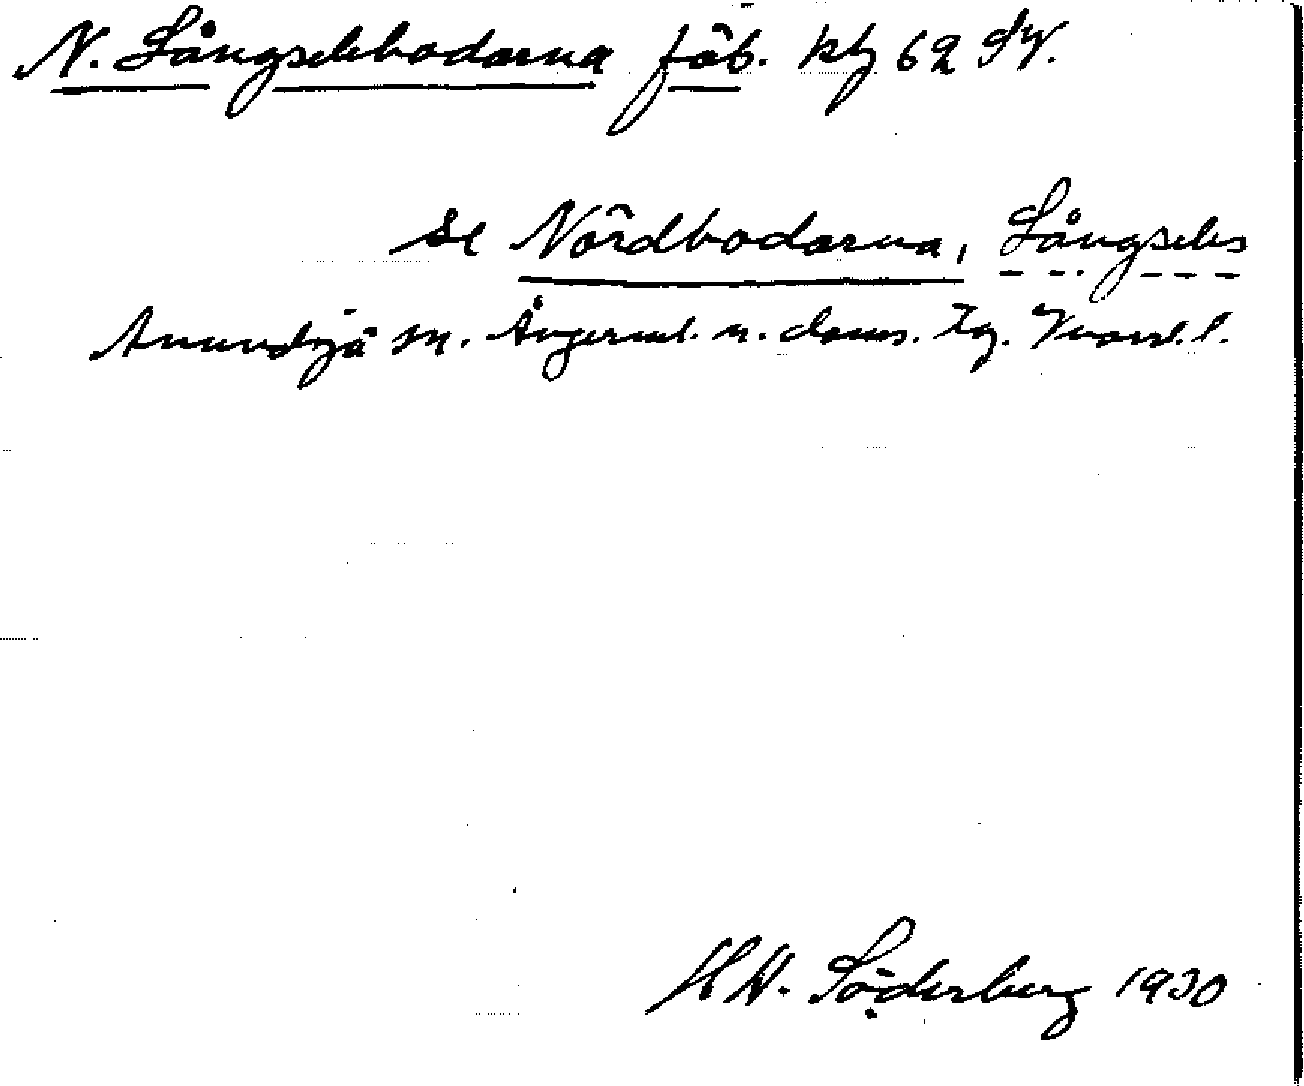 N. Långselebodarna fäb. kbl 62 SV.
se Nördbodarna, Långsels
Anundsjö sn. Ångerml. n. doms. Tg. Vnorrl. l.
H W. Söderberg 1930